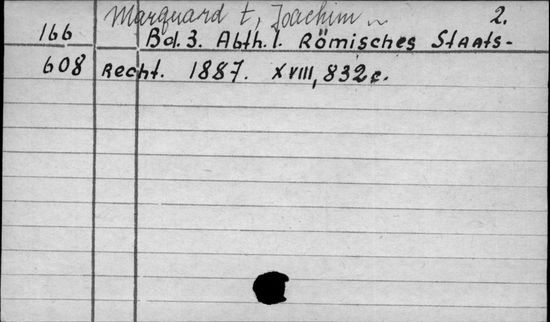 Marquardt, Joachim 2.
166 Bd. 3. Abth. 1. Römisches Staats-
608 Recht. 1887. XVIII, 832 c.